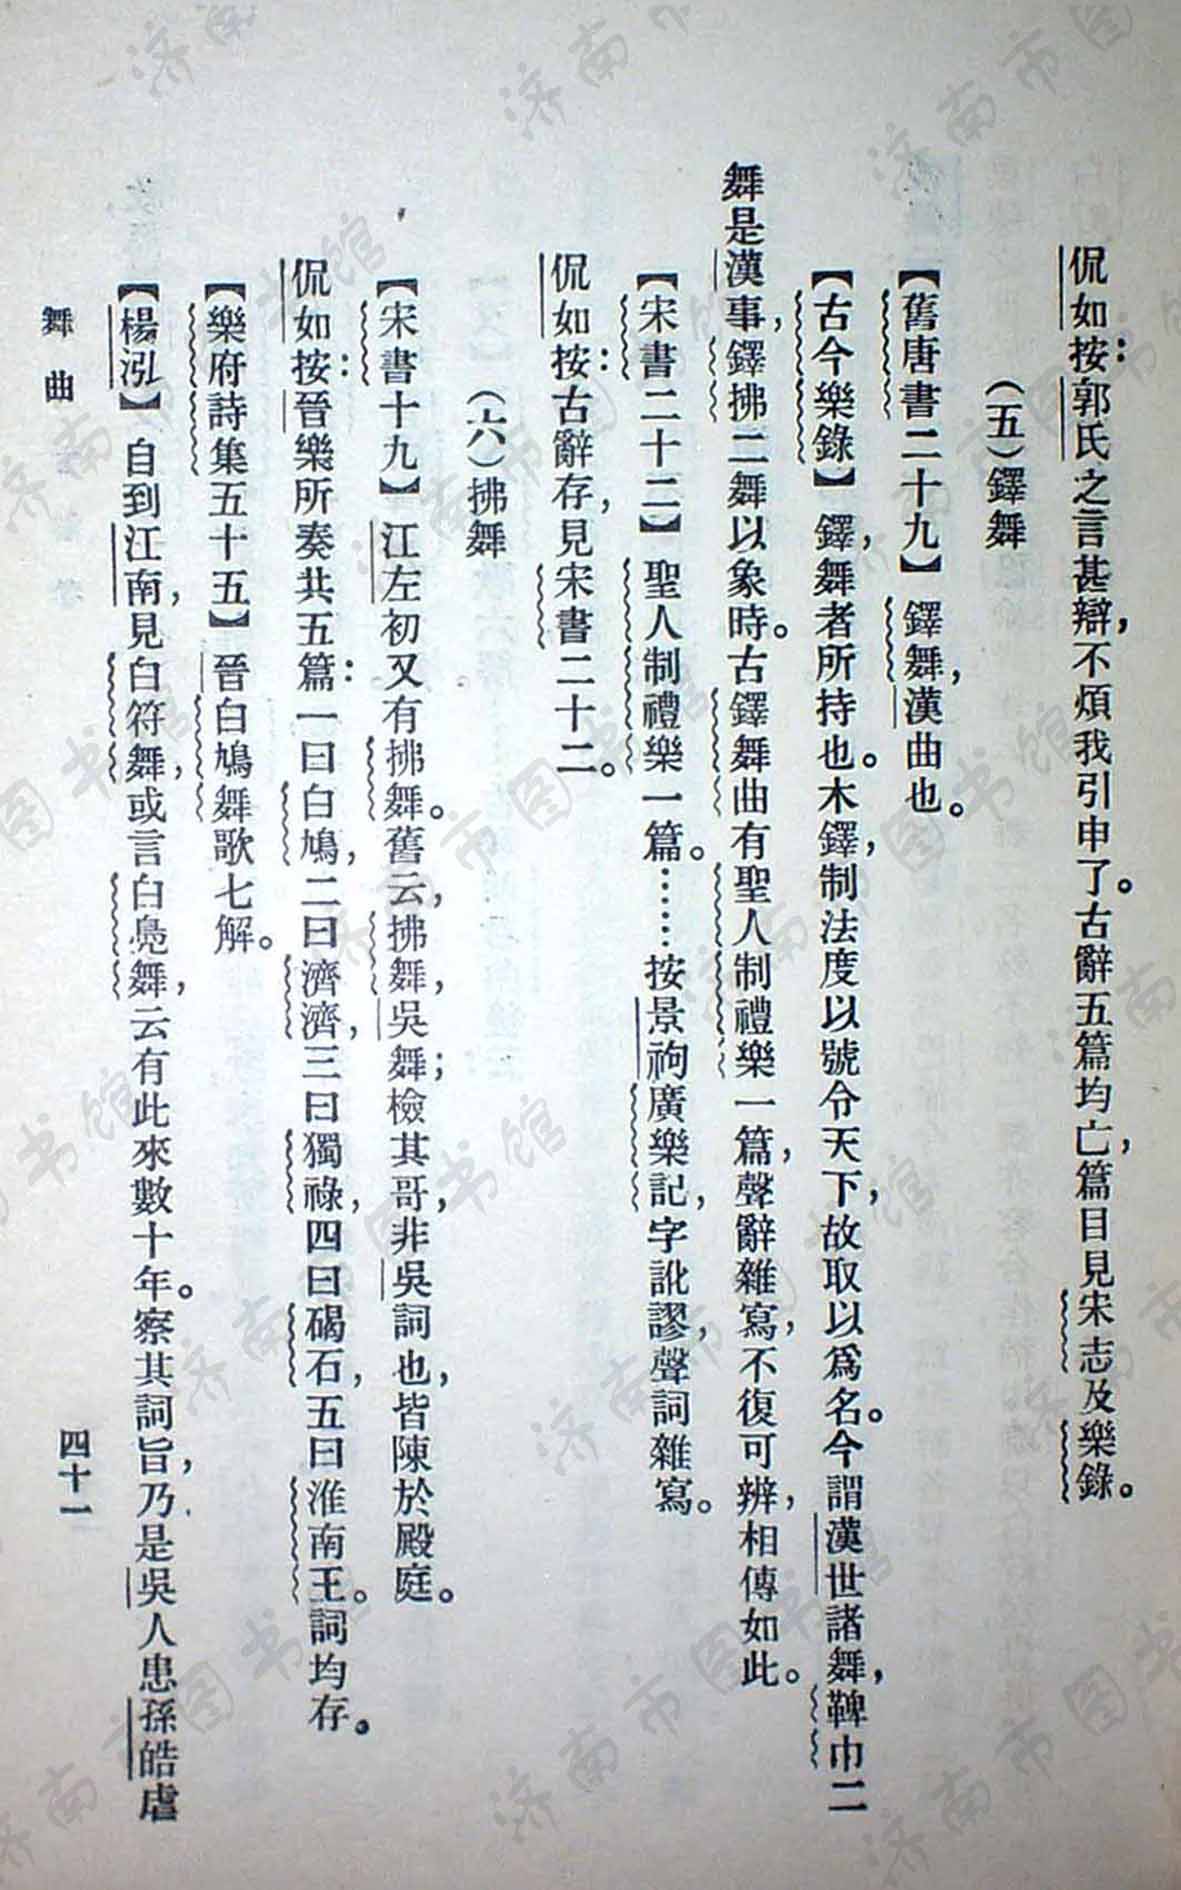 侃如按：郭氏之言甚辯，不煩我引申了。古辭五篇均亡，篇目見宋志及樂錄。
（五）鐸舞
【舊唐書二十九】鐸舞，漢曲也。
【古今樂錄】鐸，舞者所持也。木鐸，制法度以號令天下，故取以爲名。今謂漢世諸舞，鞞巾二
舞是漢事，鐸拂二舞以象時。古鐸舞曲有聖人制禮樂一篇，聲辭雜寫，不復可辨，相傳如此。
【宋書二十二】聖人制禮樂一篇。……按景祐廣樂記，字訛謬，聲詞雜寫。
侃如按：古辭存，見宋書二十二。
（六）拂舞
【宋書十九】江左初又有拂舞。舊云，拂舞，吳舞；檢其哥，非吳詞也，皆陳於殿庭。
侃如按：晉樂所奏共五篇：一曰白鳩，二曰濟濟，三曰獨祿，四曰碣石，五曰淮南王。詞均存。
【樂府詩集五十五】晉白鳩舞歌七解。
【楊泓】自到江南，見白符舞，或言白鳧舞，云有此來數十年。察其詞旨，乃是吳人患孫皓虐
舞曲
四十一
济南市图书馆